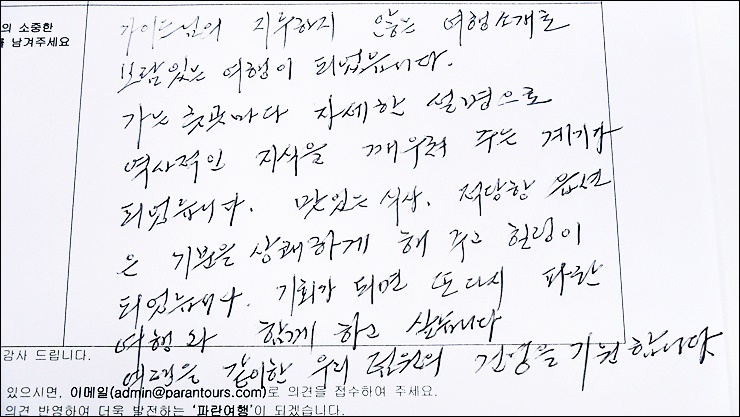 의 소중한
를 남겨주세요
가이드님의 지루하지 않는 여행소개로
보람있는 여행이 되었읍니다.
가는 곳곳마다 자세한 설명으로
역사적인 지식을 깨우쳐 주는 계기가
되었읍니다. 맛있는 식사. 적당한 옵션
은 기분을 상쾌하게 해 주고 힐링이
되었읍니다. 기회가 되면 또다시 파란
여행와 함께 하고 싶습니다
여행을 같이한 우리 팀원의 건강을 기원합니다
감사 드립니다.
있으시면, 이메일(admin@parantours.com)로 의견을 접수하여 주세요.
의견 반영하여 더욱 발전하는 '파란여행'이 되겠습니다.